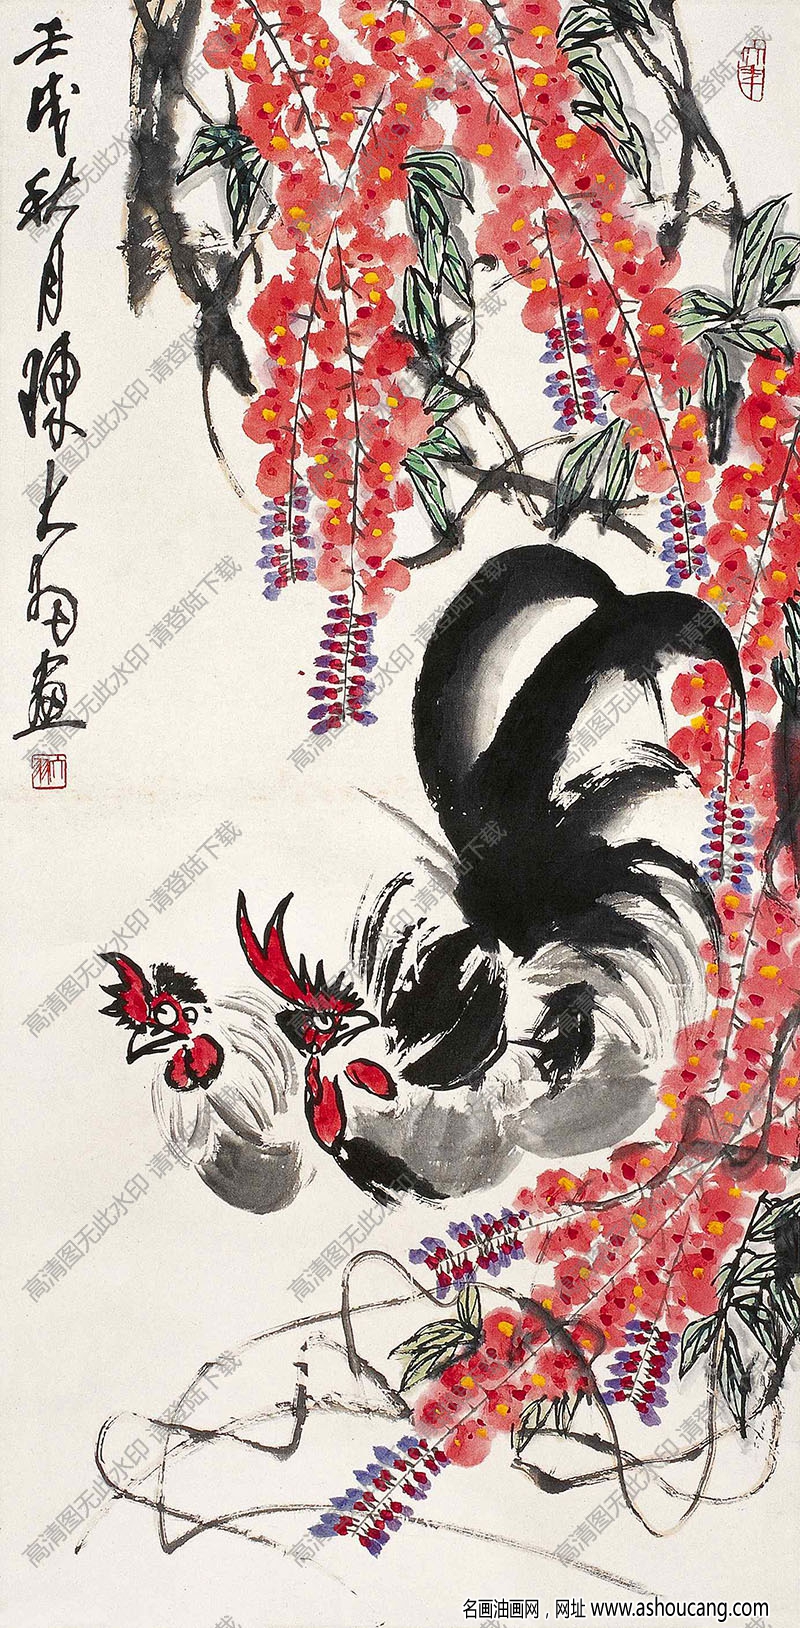 壬戌秋月陳大羽畫
大羽
高清图无此水印 请登陆下载
名画油画网，网址 www.ashoucang.com